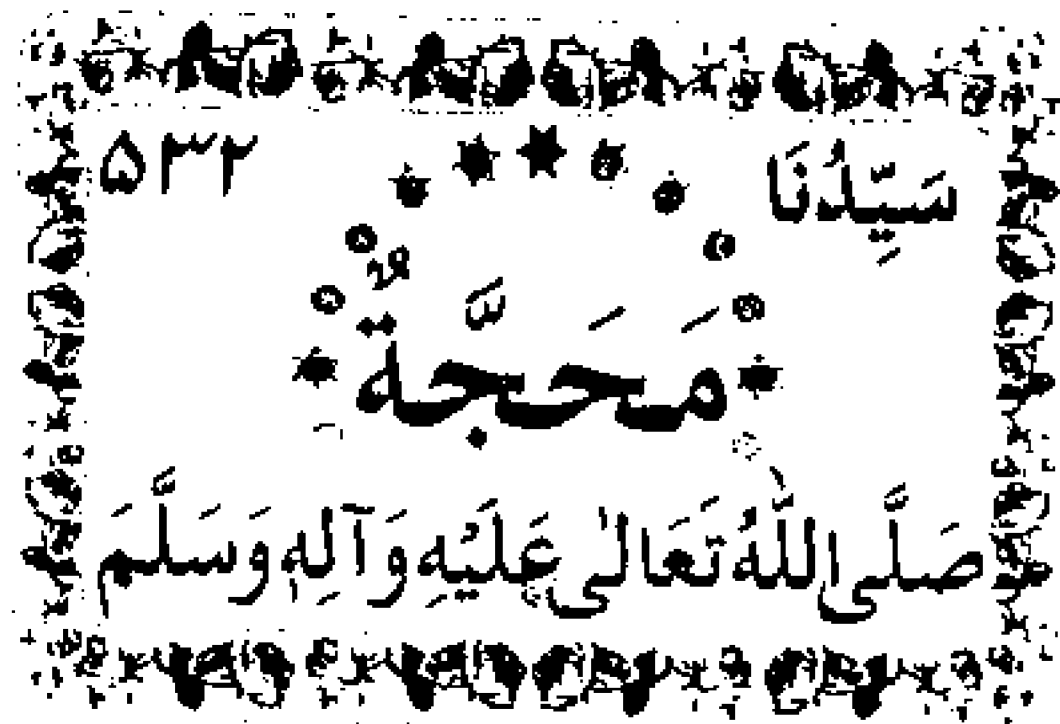 سَيِّدُنَا ۵۳۲
مَحَجَّةٌ
صَلَّى اللّٰهُ تَعَالٰى عَلَيْهِ وَآلِهٖ وَسَلَّمَ